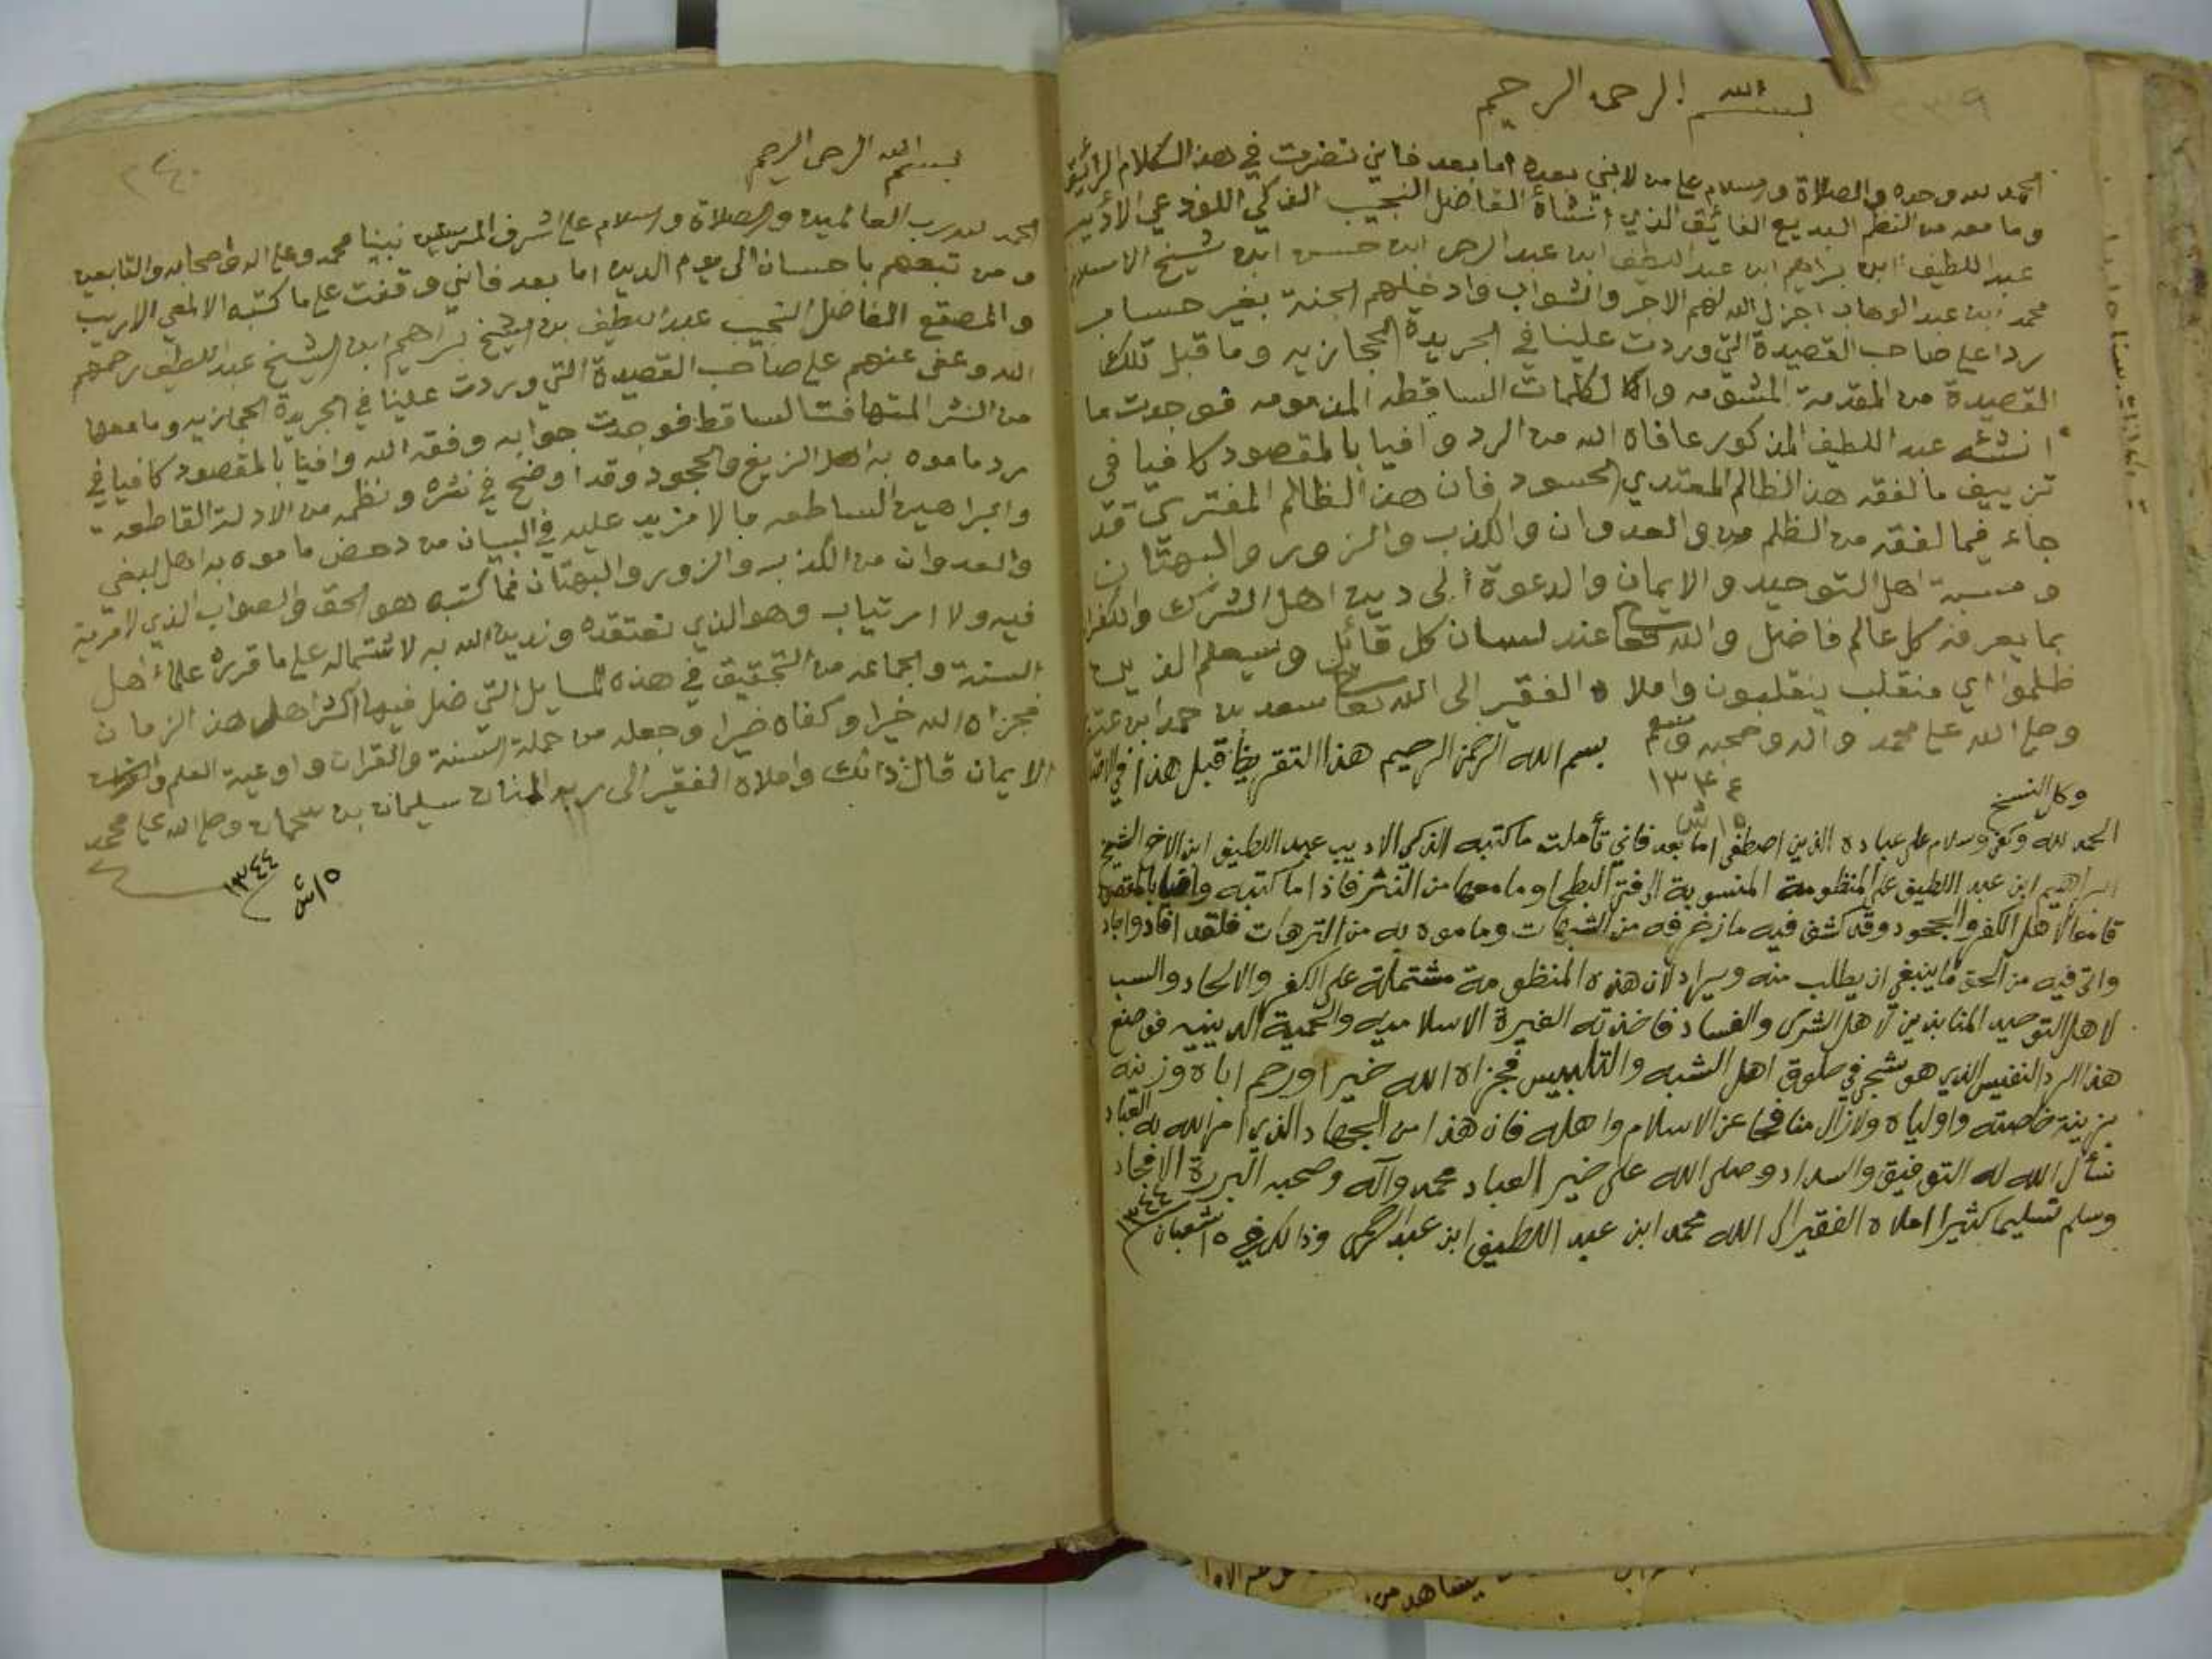 ٢٣٩
بسم الله الرحمن الرحيم
الحمد لله وحده والصلاة والسلام على من لا نبي بعده اما بعد فاني نضرت في هذا الكلام الرائق
وما معه من النظم البديع الفائق الذي أنشأة الفاضل النجيب الذكي اللوذعي الأديب
عبد اللطيف ابن ابراهيم ابن عبد اللطيف ابن عبد الرحمن ابن حسن ابن شيخ الاسلام
محمد ابن عبد الوهاب اجزل الله لهم الاجر والثواب وادخلهم الجنة بغير حساب
ردا على صاحب القصيدة التي وردت علينا في الجريدة الحجازيه وما قبل تلك
القصيدة من المقدمة المشئومه والكلمات الساقطه المذمومه فوجدت ما
انشئه عبد اللطيف المذكور عافاه الله من الرد وافيا بالمقصود كافيا في
تزييف ما لفقه هذا الظالم المعتدي الحسود فان هذا الظالم المفتري قد
جاء فيما لفقه من الظلم والعدوان والكذب والزور والبهتان
ومسبة اهل التوحيد والايمان والدعوة الى دين اهل الشرك والكفران
بما يعرفه كل عالم فاضل والله تعا عند لسان كل قائل وسيعلم الذين
ظلموا اي منقلب ينقلبون واملاه الفقير الى الله تعا سعد بن حمد ابن عتيق
وصلى الله على محمد واله وصحبه وسلم
١٣٤٤
١٥ ش
بسم الله الرحمن الرحيم هذا التقريظ قبل هذا في
وكل النسخ
الحمد لله وكفى وسلام على عباده الذين اصطفى اما بعد فاني تأملت ما كتبه الذكي الاديب عبد اللطيف ابن الاخ الشيخ
ابراهيم ابن عبد اللطيف على المنظومة المنسوبة الى فتى البطحا وما معها من النثر فاذا ما كتبه وافيا بالمقصود
قامعا لأهل الكفر والجحود وقد كشف فيه ما زخرفه من الشبهات وما موه به من الترهات فلقد افاد واجاد
واتى فيه من الحق ما ينبغي ان يطلب منه ويراد لان هذه المنظومة مشتملة على الكفر والالحاد والسب
لاهل التوحيد المنابذين لأهل الشرك والفساد فاخذته الغيرة الاسلاميه والحمية الدينيه فوضع
هذا الرد النفيس الذي هو شجى في حلوق اهل الشبه والتلبيس فجزاه الله خيرا ورحم اباه وزينه
بزينة خاصته واولياه ولازال منافحا عن الاسلام واهله فان هذا من الجهاد الذي امر الله به العباد
نسأل الله له التوفيق والسداد وصلى الله على خير العباد محمد وآله وصحبه البررة الامجاد
وسلم تسليما كثيرا املاه الفقير الى الله محمد ابن عبد اللطيف ابن عبد الرحمن وذالك في ١٥ شعبان ١٣٤٤
٢٤٠
بسم الله الرحمن الرحيم
الحمد لله رب العالمين والصلاة والسلام على اشرف المرسلين نبينا محمد وعلى اله واصحابه والتابعين
ومن تبعهم باحسان الى يوم الدين اما بعد فانني وقفت على ما كتبه الالمعي الاريب
والمصقع الفاضل النجيب عبد اللطيف بن الشيخ ابراهيم ابن الشيخ عبد اللطيف رحمهم
الله وعفى عنهم على صاحب القصيدة التي وردت علينا في الجريدة الحجازيه وما معها
من النثر المتهافت الساقط فوجدت جوابه وفقه الله وافيا بالمقصود كافيا في
رد ما موه به اهل الزيغ والجحود وقد اوضح في نثره ونظمه من الادلة القاطعه
والبراهين الساطعه ما لا مزيد عليه في البيان من دحض ما موه به اهل البغي
والعدوان من الكذب والزور والبهتان فما كتبه هو الحق والصواب الذي لا مرية
فيه ولا ارتياب وهو الذي نعتقده وندين الله به لاشتماله على ما قرره علماء اهل
السنة والجماعه من التحقيق في هذه المسايل التي ضل فيها اكثر اهل هذا الزمان
فجزاه الله خيرا وكفاه ضيرا وجعله من حملة السنة والقران واوعية العلم
الايمان قال ذالك واملاه الفقير الى ربه المنان سليمان بن سحمان وصلى الله على محمد
١٥ ش ١٣٤٤